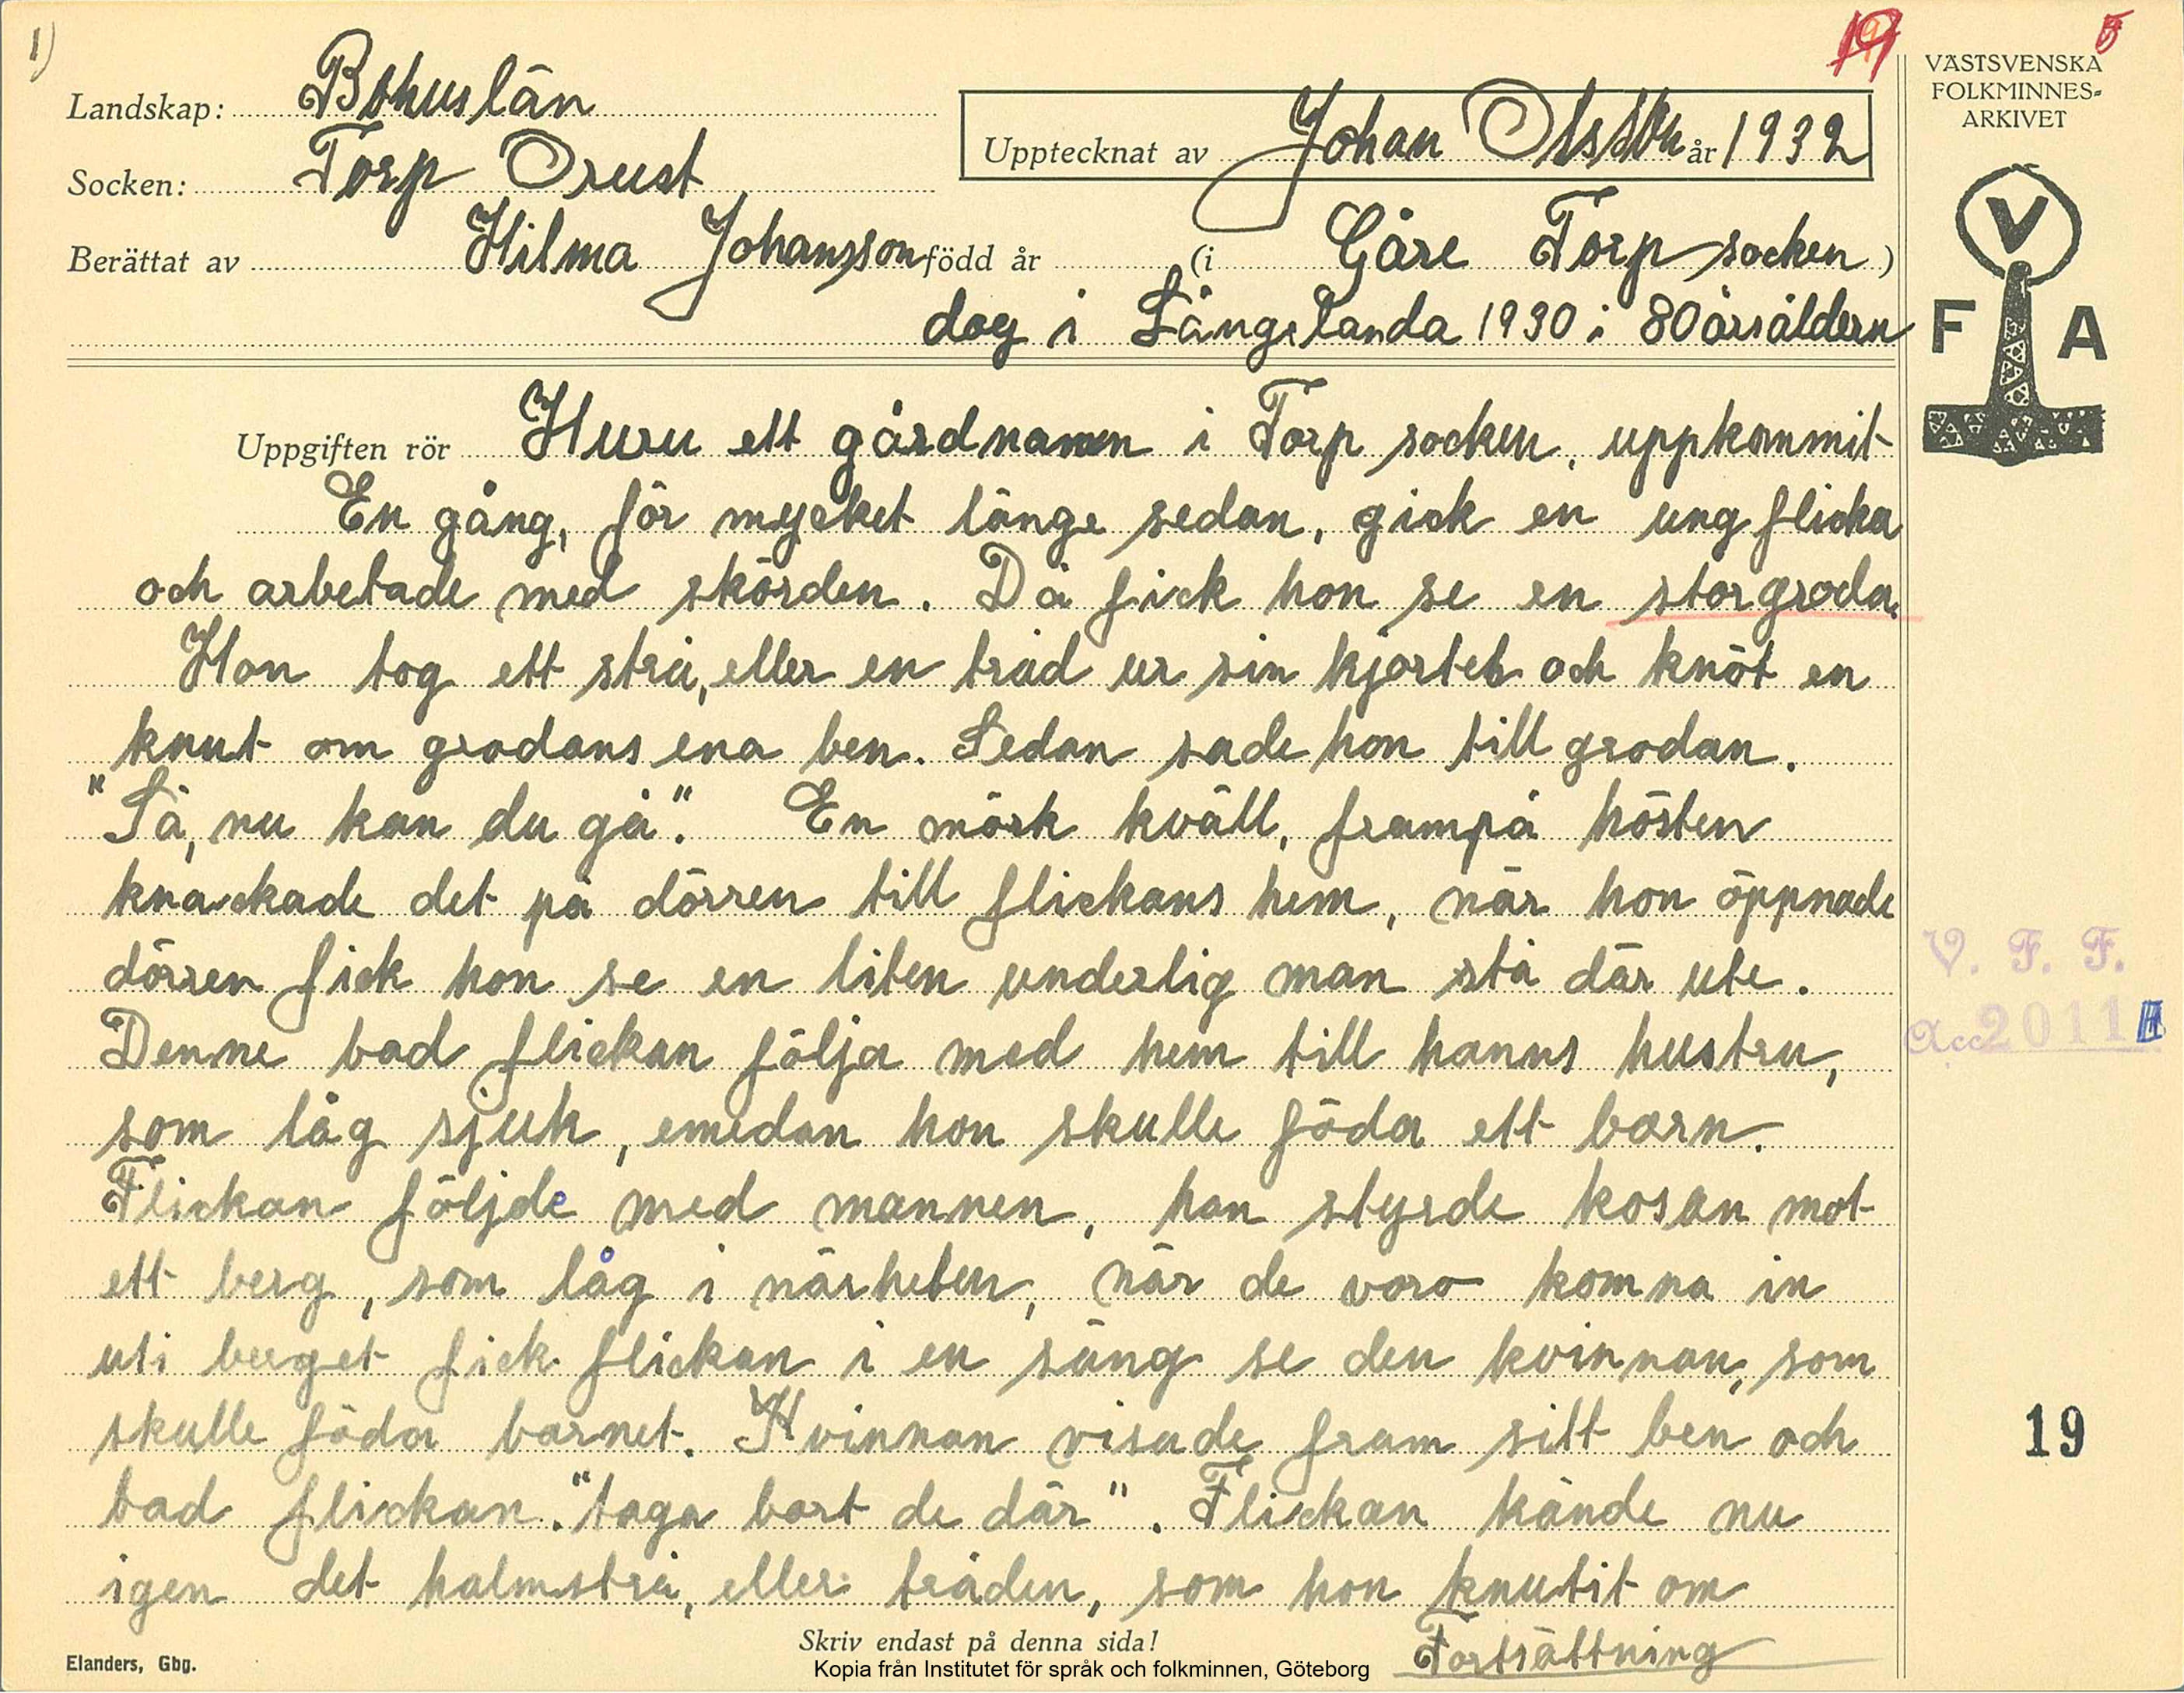 1)
19
5
Landskap: Bohuslän
Socken: Torp Orust
Upptecknat av Johan Olsson år 1932
Berättat av Hilma Johansson född år (i Gåre Torp socken)
dog i Långelanda 1930 i 80 årsåldern
VÄSTSVENSKA
FOLKMINNES=
ARKIVET
V
F A
Uppgiften rör Huru ett gårdnamn i Torp socken, uppkommit
En gång, för mycket länge sedan, gick en ung flicka
och arbetade med skörden. Då fick hon se en stor groda.
Hon tog ett strå, eller en tråd ur sin kjortel och knöt en
knut om grodans ena ben. Sedan sade hon till grodan.
"Så, nu kan du gå". En mörk kväll, frampå hösten
knackade det på dörren till flickans hem, när hon öppnade
dörren fick hon se en liten underlig man stå där ute.
Denne bad flickan följa med hem till hanns hustru,
som låg sjuk, emedan hon skulle föda ett barn.
Flickan följde med mannen, han styrde kosan mot
ett berg, som låg i närheten, när de voro komna in
uti berget fick flickan i en säng se den kvinnan, som
skulle föda barnet. Kvinnan visade fram sitt ben och
bad flickan. "taga bort de där". Flickan kände nu
igen det halmstrå, eller tråden, som hon knutit om
Fortsättning
V. F. F.
Acc 2011
19
Skriv endast på denna sida!
Elanders, Gbg.
Kopia från Institutet för språk och folkminnen, Göteborg